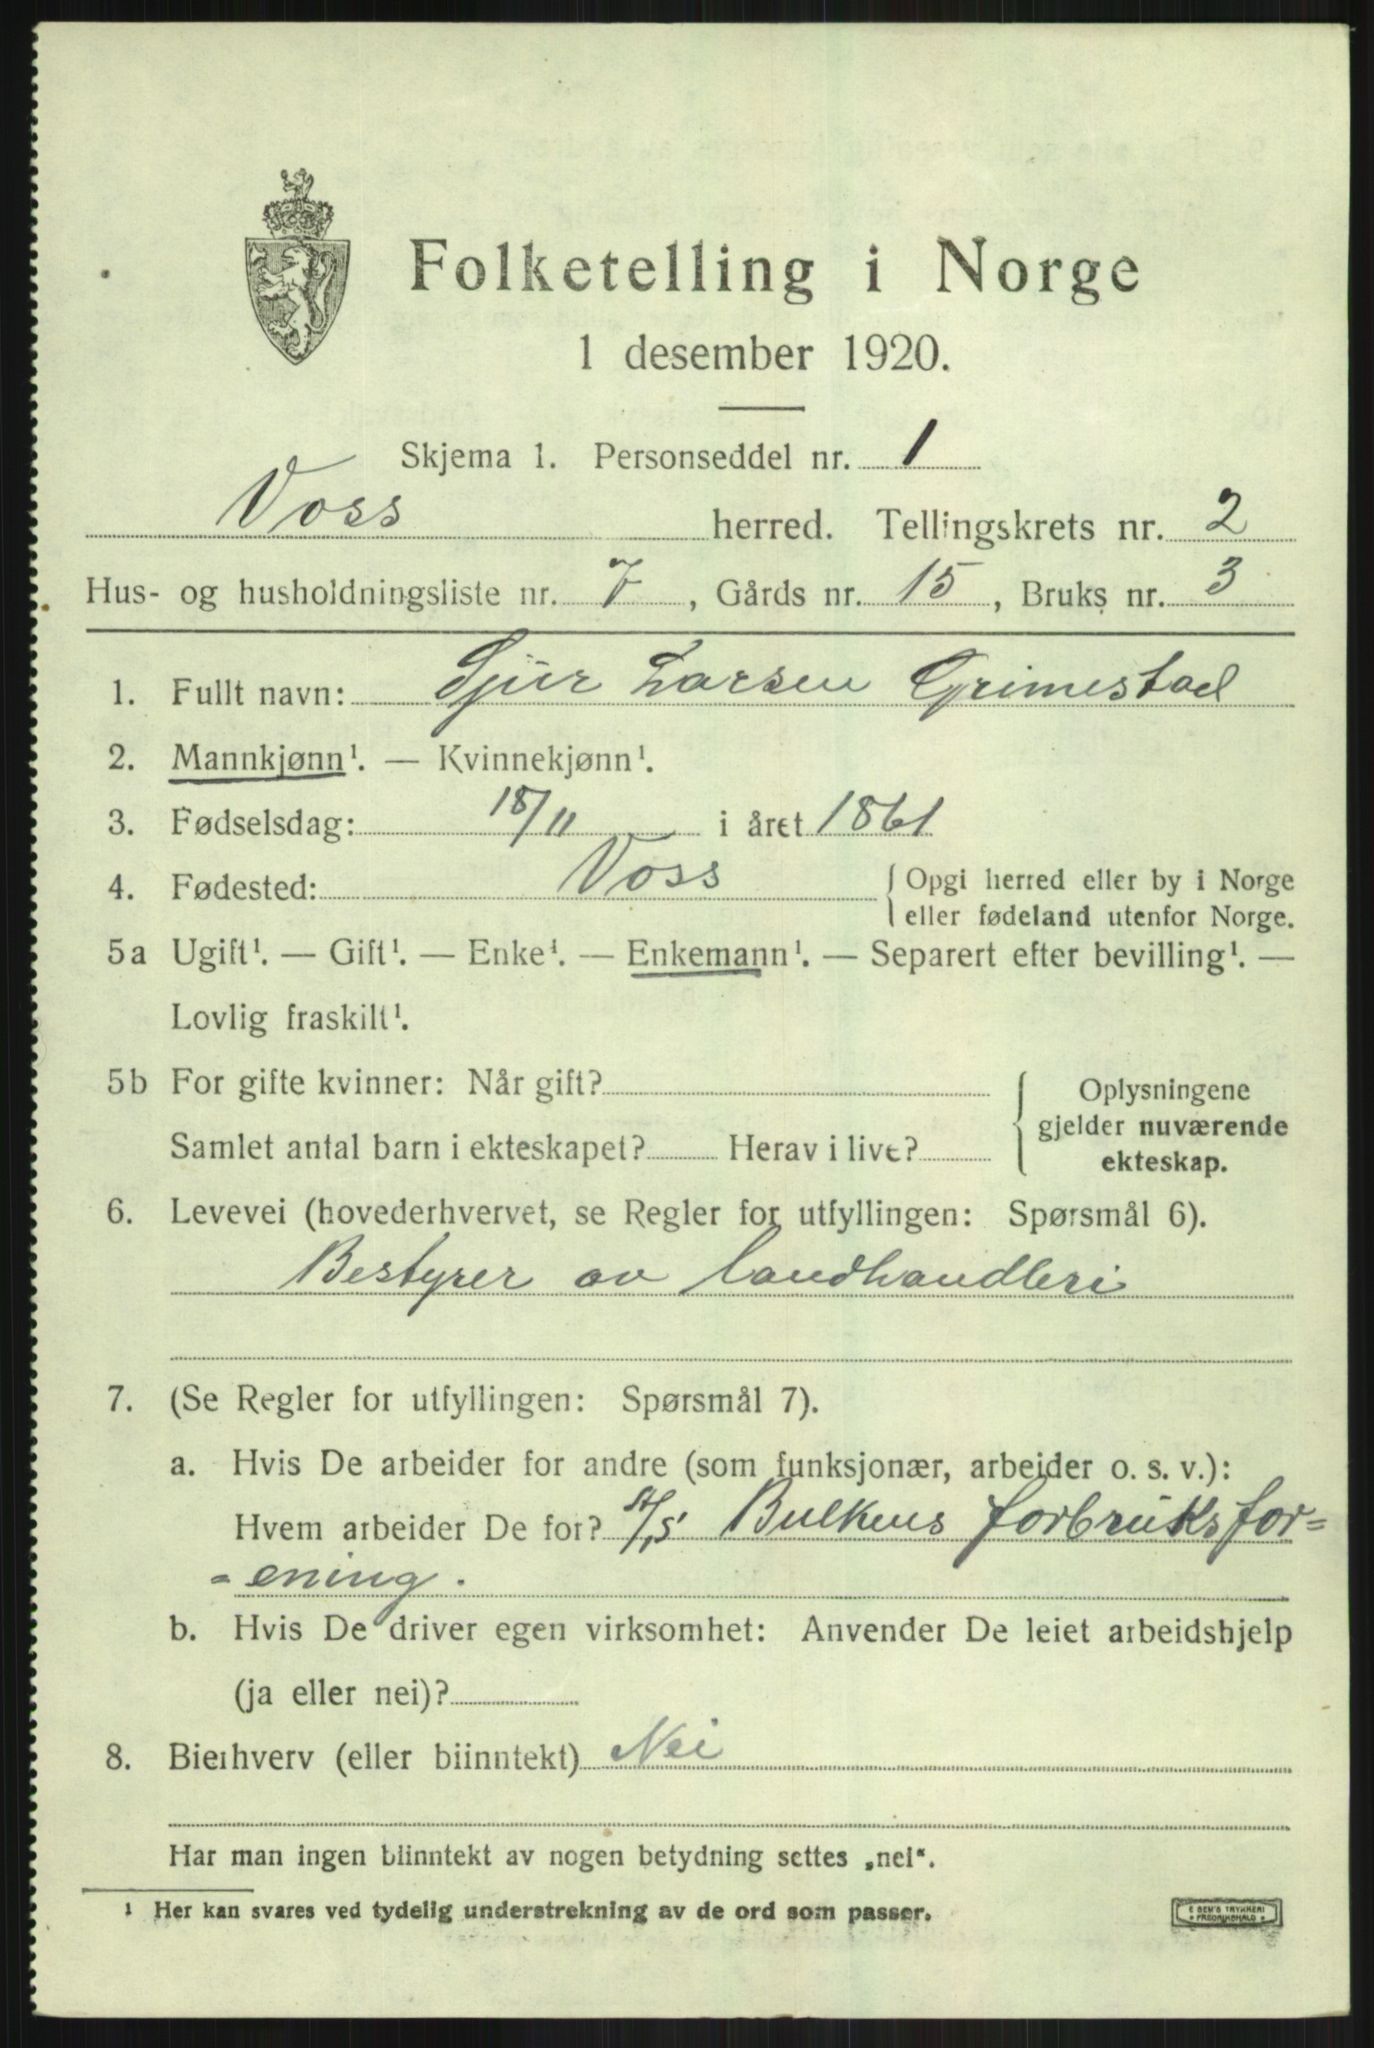 Folketelling i Norge
1 desember 1920.
Skjema 1. Personseddel nr. 1
Voss herred. Tellingskrets nr. 2
Hus- og husholdningsliste nr. 7, Gårds nr. 15, Bruks nr. 3
1. Fullt navn: Sjur Larsen Grimestad
2. Mannkjønn¹. — Kvinnekjønn¹.
3. Fødselsdag: 18/11 i året 1861
4. Fødested: Voss { Opgi herred eller by i Norge
eller fødeland utenfor Norge.
5a Ugift¹. — Gift¹. — Enke¹. — Enkemann¹. — Separert efter bevilling¹. —
Lovlig fraskilt¹.
5b For gifte kvinner: Når gift?
Samlet antal barn i ekteskapet? Herav i live?
{ Oplysningene
gjelder nuværende
ekteskap.
6. Levevei (hovederhvervet, se Regler for utfyllingen: Spørsmål 6).
Bestyrer av landhandleri
7. (Se Regler for utfyllingen: Spørsmål 7).
a. Hvis De arbeider for andre (som funksjonær, arbeider o. s. v.):
Hvem arbeider De for? A/S Bulkens forbruksfor=
=ening.
b. Hvis De driver egen virksomhet: Anvender De leiet arbeidshjelp
(ja eller nei)?
8. Bierhverv (eller biinntekt) Nei
Har man ingen biinntekt av nogen betydning settes „nei“.
¹ Her kan svares ved tydelig understrekning av de ord som passer.
E SEM'S TRYKKERI
FREDRIKSHALD